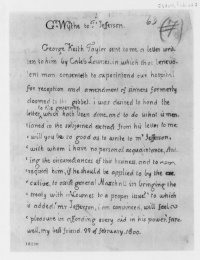 G. Wythe to T. Jefferson.
George Keith Taylor sent to me a letter writ-
ten to him by Caleb Lownes, in which that benevo-
lent man consenteth to superintend our hospital
for reception and amendment of sinners formerly
doomed to the gibbet. i was desired to hand the
to the governor
letter, which hath been done, and to do what is men-
tioned in the subjoined extract from his letter to me
'will you be so good as to write to mr Jefferson,
'with whom i have no personal acquaintance, stat-
'ing the circumstances of the business, and to
'request him, if he should be applied to by the exe-
'cutive, to general Marshall in bringing the
'treaty with Lownes to a proper issue' to which
i added 'mr Jefferson, i am convinced, will feel
'pleasure in affording every aid in his power.' fare-
well, my best friend. of february, 1800.